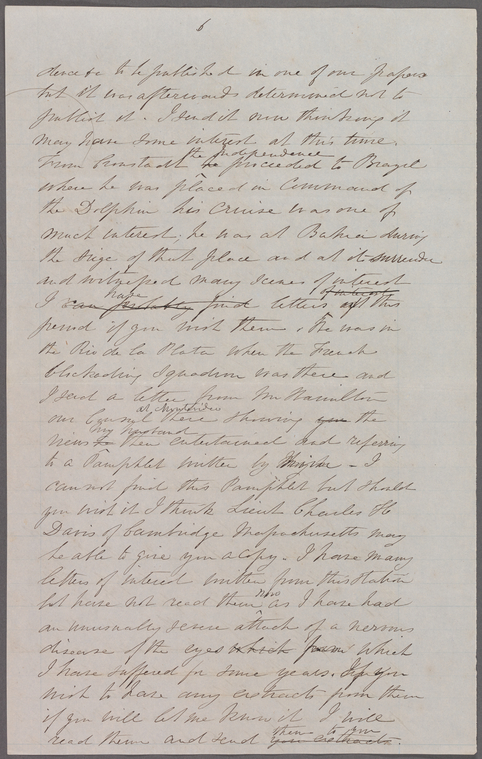 6
dence &c to be published in one of our papers
but it was afterwards determined not to
publish it. I send it now thinking it
may have some interest at this time.
the Independence
From Cronstadt he proceeded to Brazil
where he was placed in Command of
the Dolphin his Cruise was one of
much interest, he was at Bahia during
the Siege of that place and at its surrender
and witnessed many Scenes of interest
have of interest
I can probably find letters of this
period if you wish them. He was in
the Rio de la Plata when the French
blockading Squadron was there and
I send a letter from Mr Hamilton
at Montevideo
our Consul there showing you the
my husband
views to then entertained and referring
to a Pamphlet written by - I
can not find this Pamphlet but should
you wish it I think Lieut Charles H
Davis of Cambridge Massachusetts may
be able to give you a copy. I have many
letters of interest written from this Station
now
but have not read them as I have had
an unusually severe attack of a nervous
disease of the eyes which from which
I have suffered for some years. If you
wish to have any extracts from them
if you will let me know it I will
them to you
read them and send your extracts.